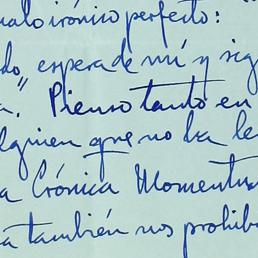 malo irónico perfecto:
do, espera de mí y sig
a." Pienso tanto en
lguien que no ha le
a Crónica Momentu
a también nos prohib